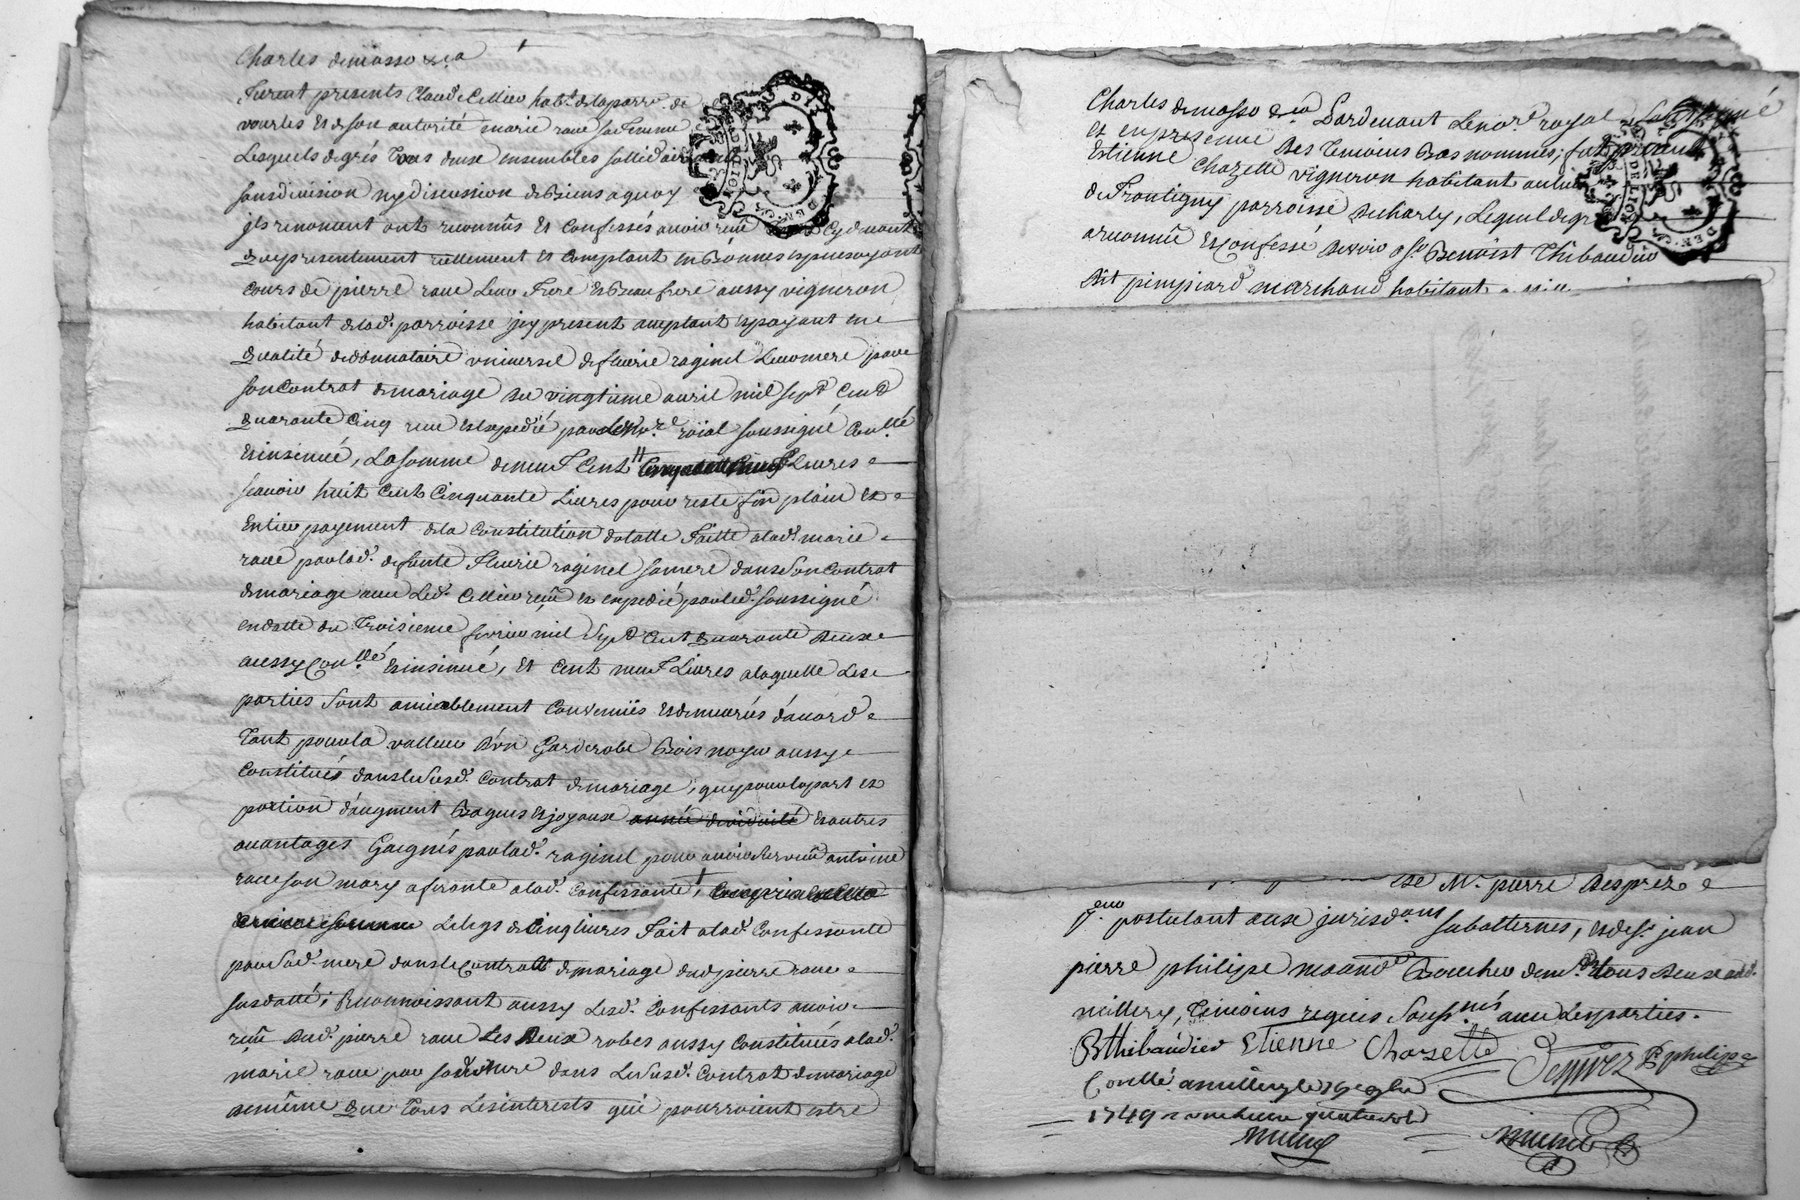 Charles demasso &ca
furent presents Claude Cellieu habt. de la parro. de
vourles et de son autorité marie raue sa femme
Lesquels de grés tous deux ensembles sollidairement
sans division ny discussion de Biens a quoy
jls renoncent ont reconnus et Confessés avoir reçu Cy devant
que presentement réellement et Comptant en Bonnes espueces ayant
cours de pierre raue leur frere et Beaufrere aussy vigneron
habitant de lad. parroisse jcy present acceptant et payant en
qualité de donnataire universel de fleurie raginel leur mere par
son Contrat de mariage du vingtieme avril mil sept Cent
quarante Cinq reçu et expedié par le Nore. roial soussigné Conllé
et insinué, La somme de neuf Cent Livres
sçavoir huit Cent Cinquante Livres pour reste fin plain et
Entier payement de la Constitution dotalle faitte a lad. marie
raue par lad. defunte fleurie raginel sa mere dans son Contrat
de mariage avec led. Cellieu reçu et expedié par led. soussigné
en datte du Troisieme fevrier mil Sept Cent quarante deux
aussy Conllé et insinué, Et Cent neuf Livres a laquelle Les
parties sont amiablement Convenües et demeurés d'accord
Tant pour la valleur d'un Garderobe Bois noyer aussy
Constitués dans le susd. Contrat de mariage, que pour la part et
portion d'augment Bagues et joyaux année de viduité et autres
avantages Gaignés par lad. raginel pour avoir survecu antoine
raue son mary afferante a lad. Confessante, Compris
Le legs de Cinq livres fait a lad. Confessante
par sad. mere dans le Contrat de mariage dud. pierre raue
susdatté; Reconnoissant aussy Lesd. Confessants avoir
reçu dud. pierre raue Les deux robes aussy Constituées a lad.
marie raue par sad. mere dans Le susd. Contrat de mariage
de même que Tous Les interests qui pourroient estre
Charles demasso &ca Pardevant Le Nore. royal soussigné
et en presence des Temoins Bas nommés; fut present
Estienne Chazette vigneron habitant au lieu
de Frontigny parroisse de Charly, Lequel de gré
a reconnu et Confessé devoir a Sr. Benoist Thibaudier
dit pimpiard marchand habitant
de Mr. pierre Desprez
pro. postulant aux jurisdons subalternes, et de sr. jean
pierre philipe marchd. Boucher demts. tous deux aud.
millery, Témoins requis soussnés avec Les parties.
Bthibaudier Etienne Chazette Desprez P philipe
Conllé a millery le 19e 9bre
1749 r